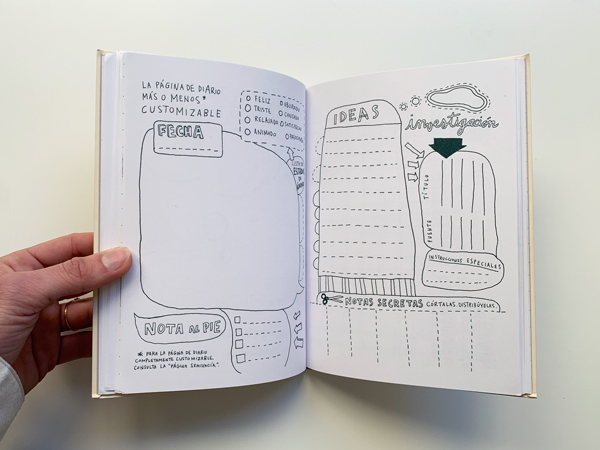 LA PÁGINA DE DIARIO
MÁS O MENOS*
CUSTOMIZABLE
FECHA
FELIZ
TRISTE
RELAJADO
ANIMADO
ABURRIDO
CANSADA
NOTA AL PIE
* PARA LA PÁGINA DE DIARIO
COMPLETAMENTE CUSTOMIZABLE,
CONSULTA LA "PÁGINA SENCILLA".
IDEAS
investigación
TÍTULO
FUENTE
INSTRUCCIONES ESPECIALES
NOTAS SECRETAS CÓRTALAS. DISTRIBÚYELAS.